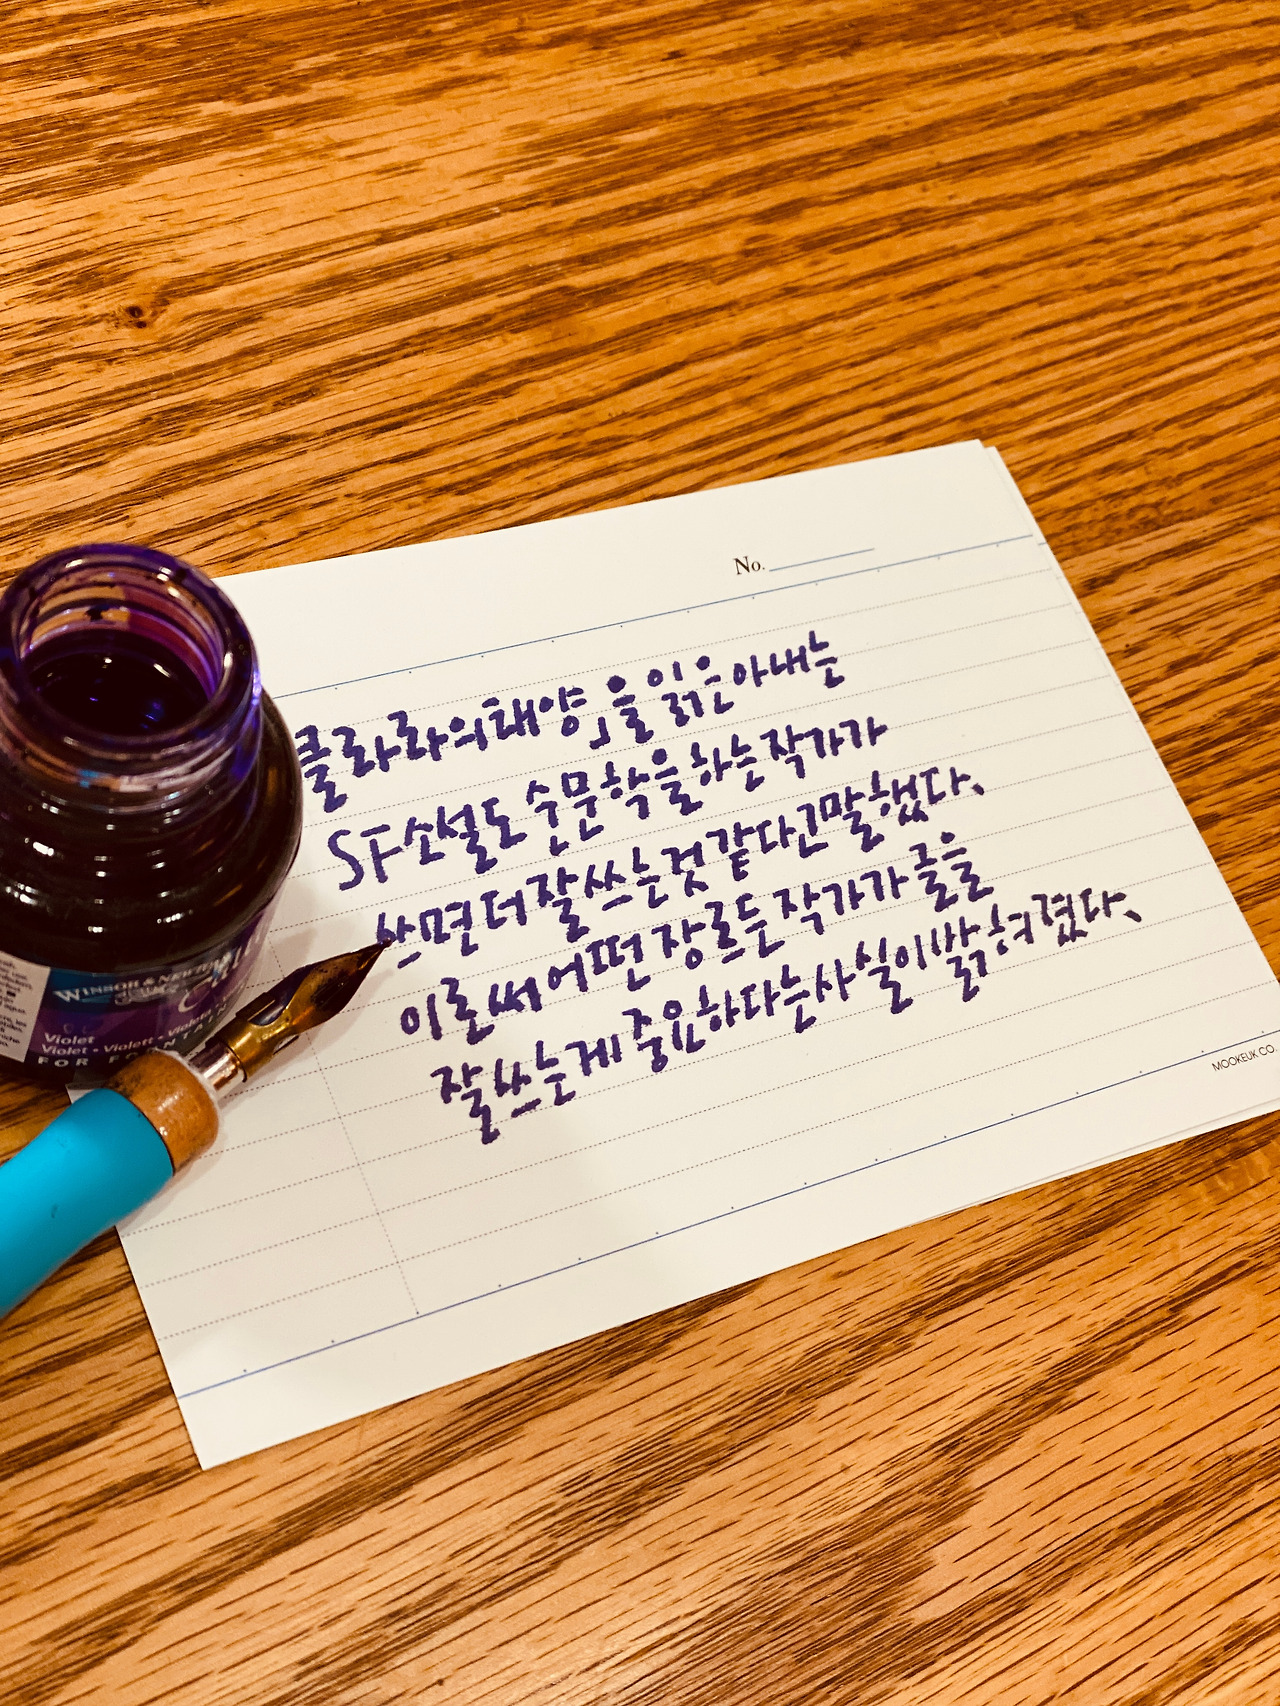 No.
클라라와태양」을 읽은 아내는
SF소설도 순문학을 하는 작가가
쓰면 더 잘 쓰는 것 같다고 말했다.
이로써 어떤 장르든 작가가 글을
잘 쓰는게 중요하다는 사실이 밝혀졌다.
MOOKEUK CO.
WINSOR & NEWTON
Violet
Violet • Violett • Violet